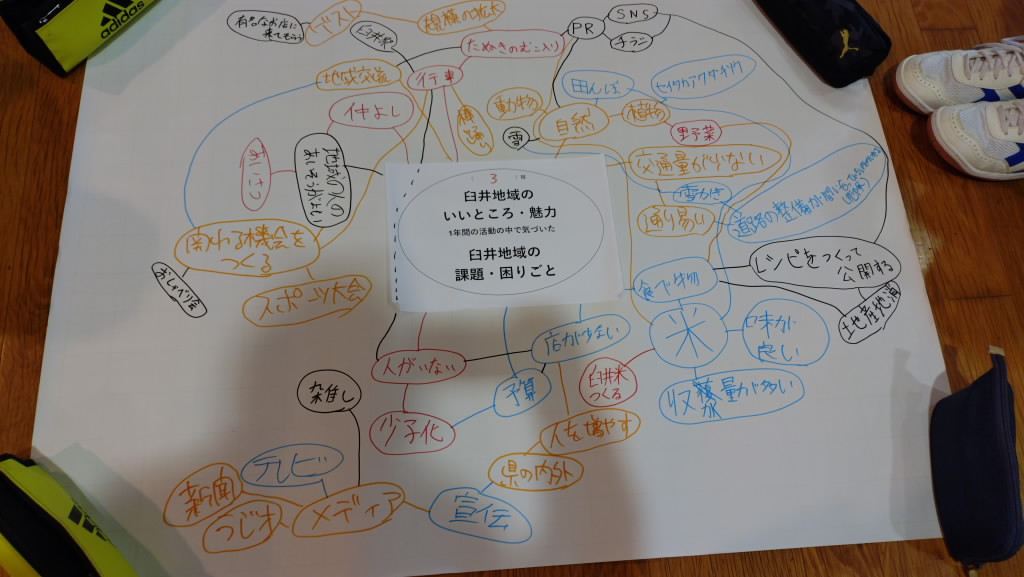 adidas
有名なお店に
来てもらう
ベスト
規模の拡大
臼井駅
PR
SNS
チラシ
たぬきのむこ入り
地域交流
行事
仲よし
動物
田んぼ
植物
自然
雪
野菜
交通量が少ない
雪かき
通り易い
あいさつ
関わる機会を
つくる
おしゃべり会
スポーツ大会
3
臼井地域の
いいところ・魅力
1年間の活動の中で気づいた
臼井地域の
課題・困りごと
食べ物
レシピをつくって
公開する
地産地消
米
味が
良い
収穫量が多い
臼井米
つくる
店が少ない
人がいない
予算
少子化
人を増やす
県の内外
宣伝
メディア
雑誌
テレビ
新聞
ラジオ